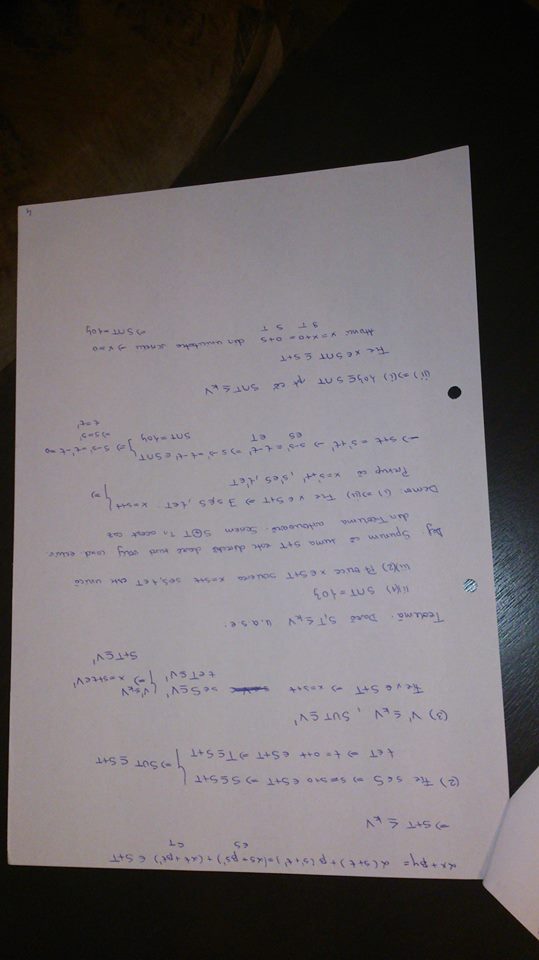 αx+βy = α(s+t)+β(s'+t')=(αs+βs')+(αt+βt') ∈ S+T
∈S ∈T
⇒ S+T ≤ₖV
(2) Fie s∈S ⇒ s=s+0 ∈S+T ⇒ S⊆S+T
t∈T ⇒ t=0+t ∈S+T ⇒ T⊆S+T } ⇒ SUT ⊆ S+T
(3) V' ≤ₖV , SUT⊆V'
Fie x∈S+T ⇒ x=s+t s∈S⊆V' V'≤ₖV
t∈T⊆V' } ⇒ x=s+t∈V'
S+T⊆V'
Teorema. Dacă S,T≤ₖV u.a.s.e:
i)(1) S∩T={0}
ii)(2) Pt orice x∈S+T scrierea x=s+t s∈S, t∈T este unică
Def. Spunem că suma S+T este directă dacă are loc una
din Teorema anterioară. Scriem S⊕T în acest caz
Dem: (i)⇒(ii) Fie x∈S+T ⇒ ∃ s∈S, t∈T. x=s+t
Presup că x=s'+t', s'∈S, t'∈T } ⇒
⇒ s+t = s'+t' ⇒ s-s'=t'-t ⇒ s-s'=t'-t ∈S∩T
∈S ∈T S∩T={0} } ⇒ s-s'=t'-t=0
⇒ s=s'
t=t'
(ii)⇒(i) {0}⊆S∩T pt că S∩T≤ₖV
Fie x∈S∩T ⊆ S+T
Atunci x=x+0=0+x din unicitatea scrierii ⇒ x=0
S T S T ⇒ S∩T={0}
4